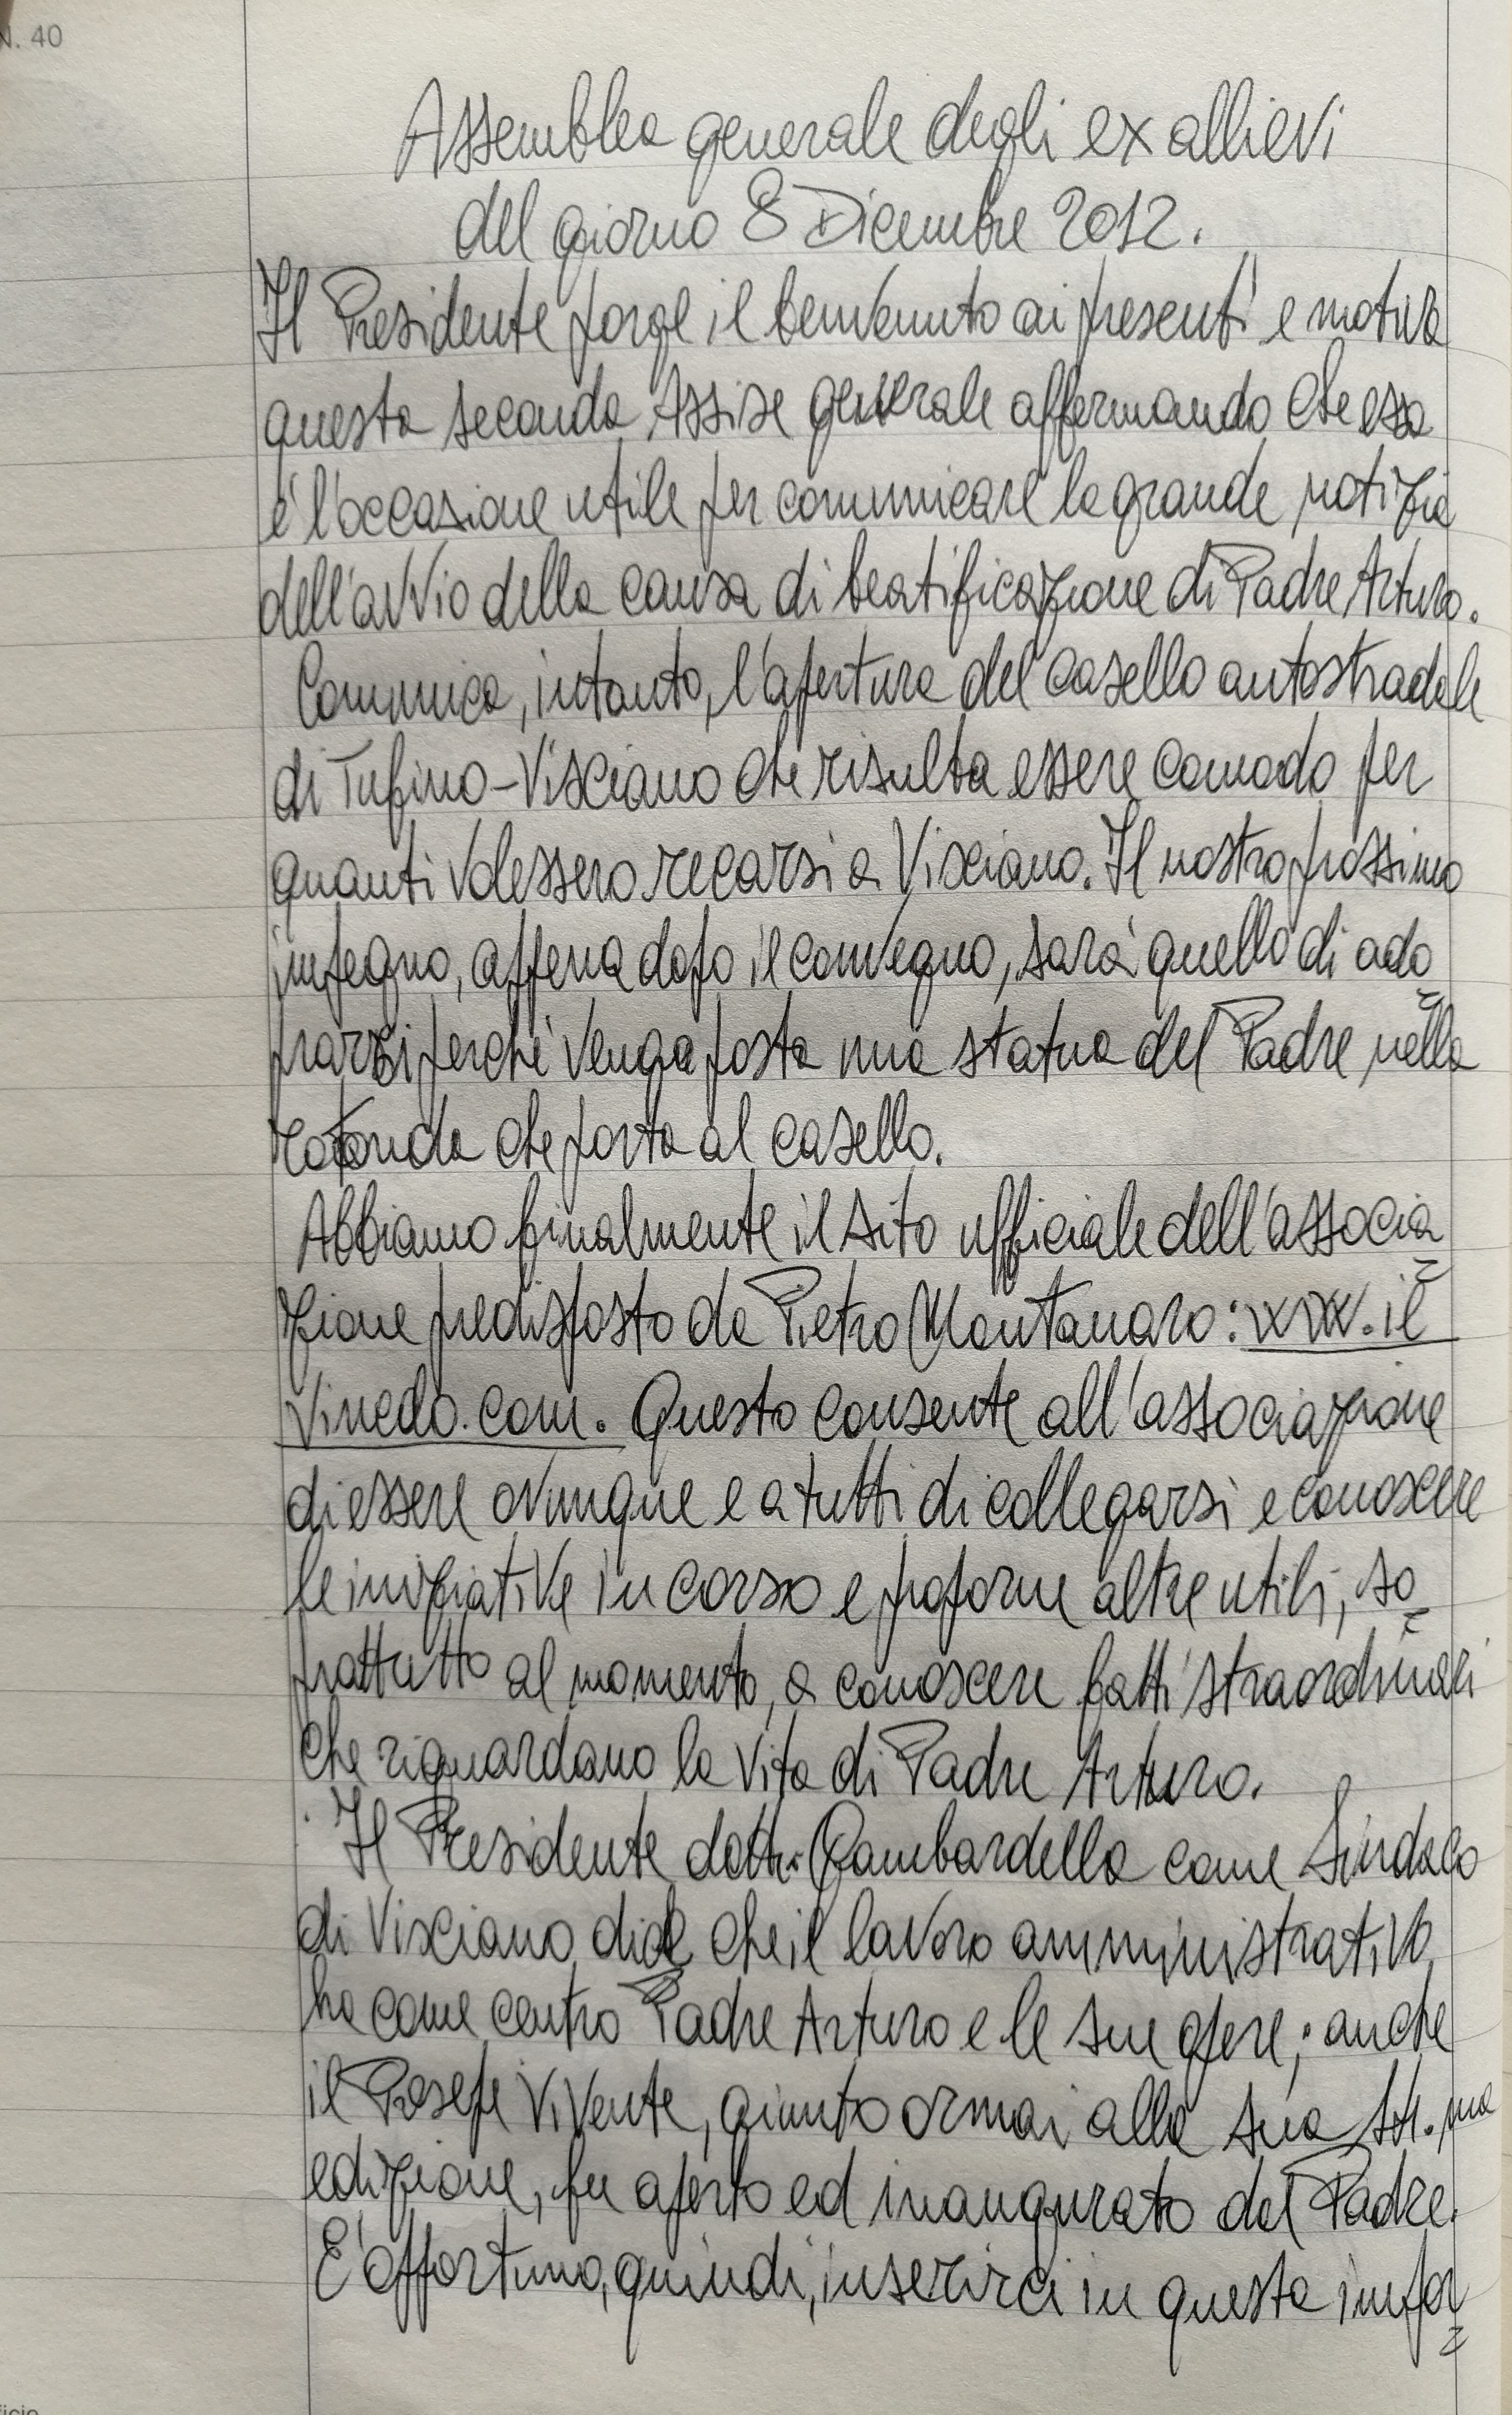 N. 40
Assemblea generale degli ex allievi
del giorno 8 Dicembre 2012.
Il Presidente porge il benvenuto ai presenti e motiva
questa seconda Assise generale affermando che essa
è l'occasione utile per comunicare la grande notizia
dell'avvio della causa di beatificazione di Padre Arturo.
Comunica, intanto, l'apertura del casello autostradale
di Tufino-Visciano che risulta essere comodo per
quanti volessero recarsi a Visciano. Il nostro prossimo
impegno, appena dopo il convegno, sarà quello di ado
prarsi perché venga posta una statua del Padre nella
rotonda che porta al casello.
Abbiamo finalmente il sito ufficiale dell'associa
zione predisposto da Pietro Montanaro: www.il
Vinedo.com. Questo consente all'associazione
di essere ovunque e a tutti di collegarsi e conoscere
le iniziative in corso e proporne altre utili, so
prattutto al momento, a conoscere fatti straordinari
che riguardano la vita di Padre Arturo.
Il Presidente dott. Gambardella come Sindaco
di Visciano dice che il lavoro amministrativo
ha come centro Padre Arturo e le sue opere; anche
il Presepe Vivente, giunto ormai alla sua
edizione, fu aperto ed inaugurato dal Padre.
E' opportuno, quindi, inserirci in questa impor